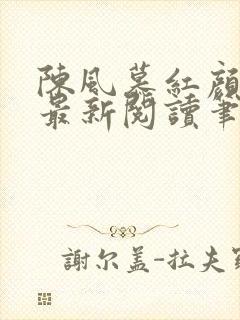 陳風慕紅顏
最新閱讀筆
謝尔盖-拉夫羅